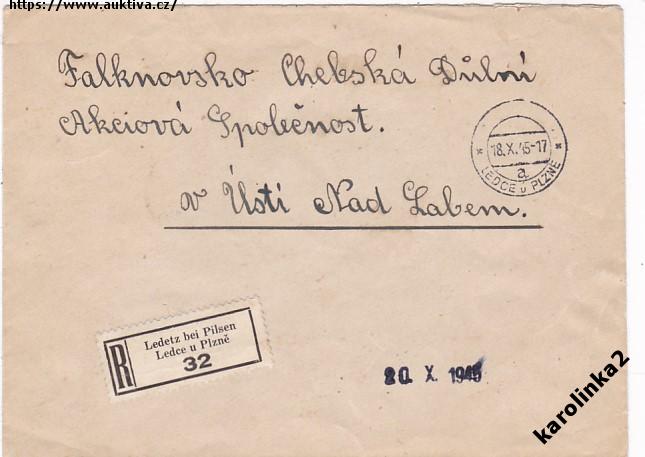 https://www.auktiva.cz/
Falknovsko Chebská Důlní
Akciová Společnost.
v Ústí Nad Labem.
18.X.45-17
a
LEDCE u PLZNĚ
R
Ledetz bei Pilsen
Ledce u Plzně
32
20. X. 1945
karolinka2